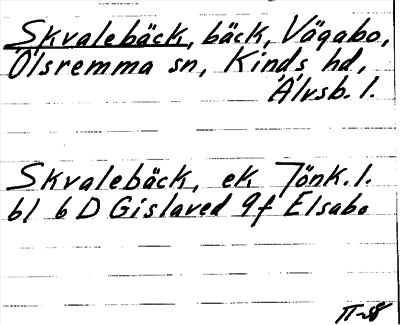 Skvalebäck, bäck, Vägabo,
Ölsremma sn, Kinds hd,
Älvsb. l.
Skvalebäck, ek Jönk. l.
bl 6 D Gislaved 9f Elsabo